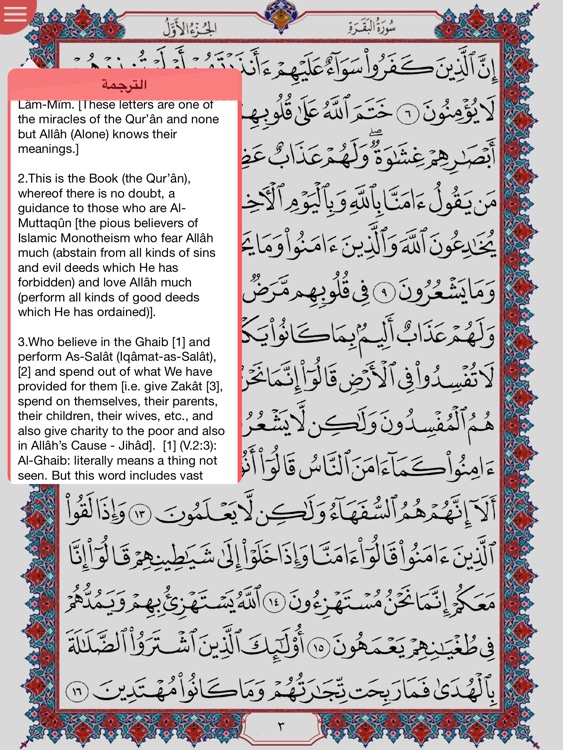 سُورَةُ البَقَرَةِ
الجُزْءُ الأَوَّلُ
إِنَّ ٱلَّذِينَ كَفَرُوا۟ سَوَآءٌ عَلَيْهِمْ ءَأَنذَرْتَهُمْ أَمْ لَمْ تُنذِرْهُمْ
لَا يُؤْمِنُونَ ٦ خَتَمَ ٱللَّهُ عَلَىٰ قُلُوبِهِ
أَبْصَٰرِهِمْ غِشَٰوَةٌ ۖ وَلَهُمْ عَذَابٌ
مَن يَقُولُ ءَامَنَّا بِٱللَّهِ وَبِٱلْيَوْمِ
يُخَٰدِعُونَ ٱللَّهَ وَٱلَّذِينَ ءَامَنُوا۟ وَمَا
وَمَا يَشْعُرُونَ ٩ فِى قُلُوبِهِم مَّرَضٌ
وَلَهُمْ عَذَابٌ أَلِيمٌۢ بِمَا كَانُوا۟
لَا تُفْسِدُوا۟ فِى ٱلْأَرْضِ قَالُوٓا۟ إِنَّمَا نَحْنُ
هُمُ ٱلْمُفْسِدُونَ وَلَٰكِن لَّا
ءَامِنُوا۟ كَمَآ ءَامَنَ ٱلنَّاسُ قَالُوٓا۟
أَلَآ إِنَّهُمْ هُمُ ٱلسُّفَهَآءُ وَلَٰكِن لَّا يَعْلَمُونَ ١٣ وَإِذَا لَقُوا۟
ٱلَّذِينَ ءَامَنُوا۟ قَالُوٓا۟ ءَامَنَّا وَإِذَا خَلَوْا۟ إِلَىٰ شَيَٰطِينِهِمْ قَالُوٓا۟ إِنَّا
مَعَكُمْ إِنَّمَا نَحْنُ مُسْتَهْزِءُونَ ١٤ ٱللَّهُ يَسْتَهْزِئُ بِهِمْ وَيَمُدُّهُمْ
فِى طُغْيَٰنِهِمْ يَعْمَهُونَ ١٥ أُو۟لَٰٓئِكَ ٱلَّذِينَ ٱشْتَرَوُا۟ ٱلضَّلَٰلَةَ
بِٱلْهُدَىٰ فَمَا رَبِحَت تِّجَٰرَتُهُمْ وَمَا كَانُوا۟ مُهْتَدِينَ ١٦
٣
الترجمة
Lâm-Mîm. [These letters are one of
the miracles of the Qur'ân and none
but Allâh (Alone) knows their
meanings.]
2.This is the Book (the Qur'ân),
whereof there is no doubt, a
guidance to those who are Al-
Muttaqûn [the pious believers of
Islamic Monotheism who fear Allâh
much (abstain from all kinds of sins
and evil deeds which He has
forbidden) and love Allâh much
(perform all kinds of good deeds
which He has ordained)].
3.Who believe in the Ghaib [1] and
perform As-Salât (Iqâmat-as-Salât),
[2] and spend out of what We have
provided for them [i.e. give Zakât [3],
spend on themselves, their parents,
their children, their wives, etc., and
also give charity to the poor and also
in Allâh's Cause - Jihâd].  [1] (V.2:3):
Al-Ghaib: literally means a thing not
seen. But this word includes vast